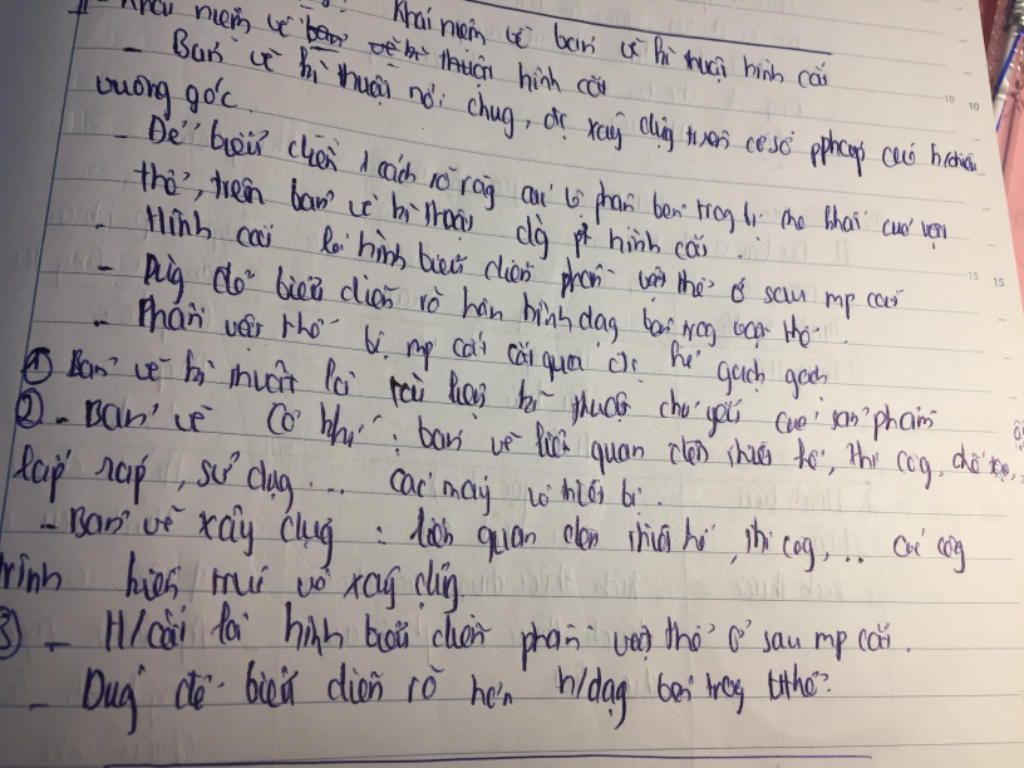 Khái niệm về bản vẽ kĩ thuật hình cắt
II - Khái niệm về bản vẽ kĩ thuật hình cắt
- Bản vẽ kĩ thuật nói chug, đc xây dựg trên cơ sở pphap các h/chiếu
vuông góc.
- Để biểu diễn 1 cách rõ ràg các bộ phận bên trog lỗ của vật
thể, trên bản vẽ kĩ thuật dùg hình cắt.
- Hình cắt là hình biểu diễn phần vật thể ở sau mp cắt
- Dùg để biểu diễn rõ hơn hình dạg bên trog vật thể.
- Phần vật thể bị mp cắt cắt qua đc kẻ gạch gạch
① Bản vẽ kĩ thuật là tài liệu kĩ thuật chủ yếu của sản phẩm
② - Bản vẽ cơ khí : bản vẽ liên quan đến thiết kế, thi côg, chế tạo,
lắp ráp, sử dụg ... các máy và thiết bị.
- Bản vẽ xây dựg : liên quan đến thiết kế, thi côg, .. các côg
trình kiến trúc và xây dựg
③ - H/cắt là hình biểu diễn phần vật thể ở sau mp cắt.
- Dug để biểu diễn rõ hơn h/dạg bên trog v/thể.